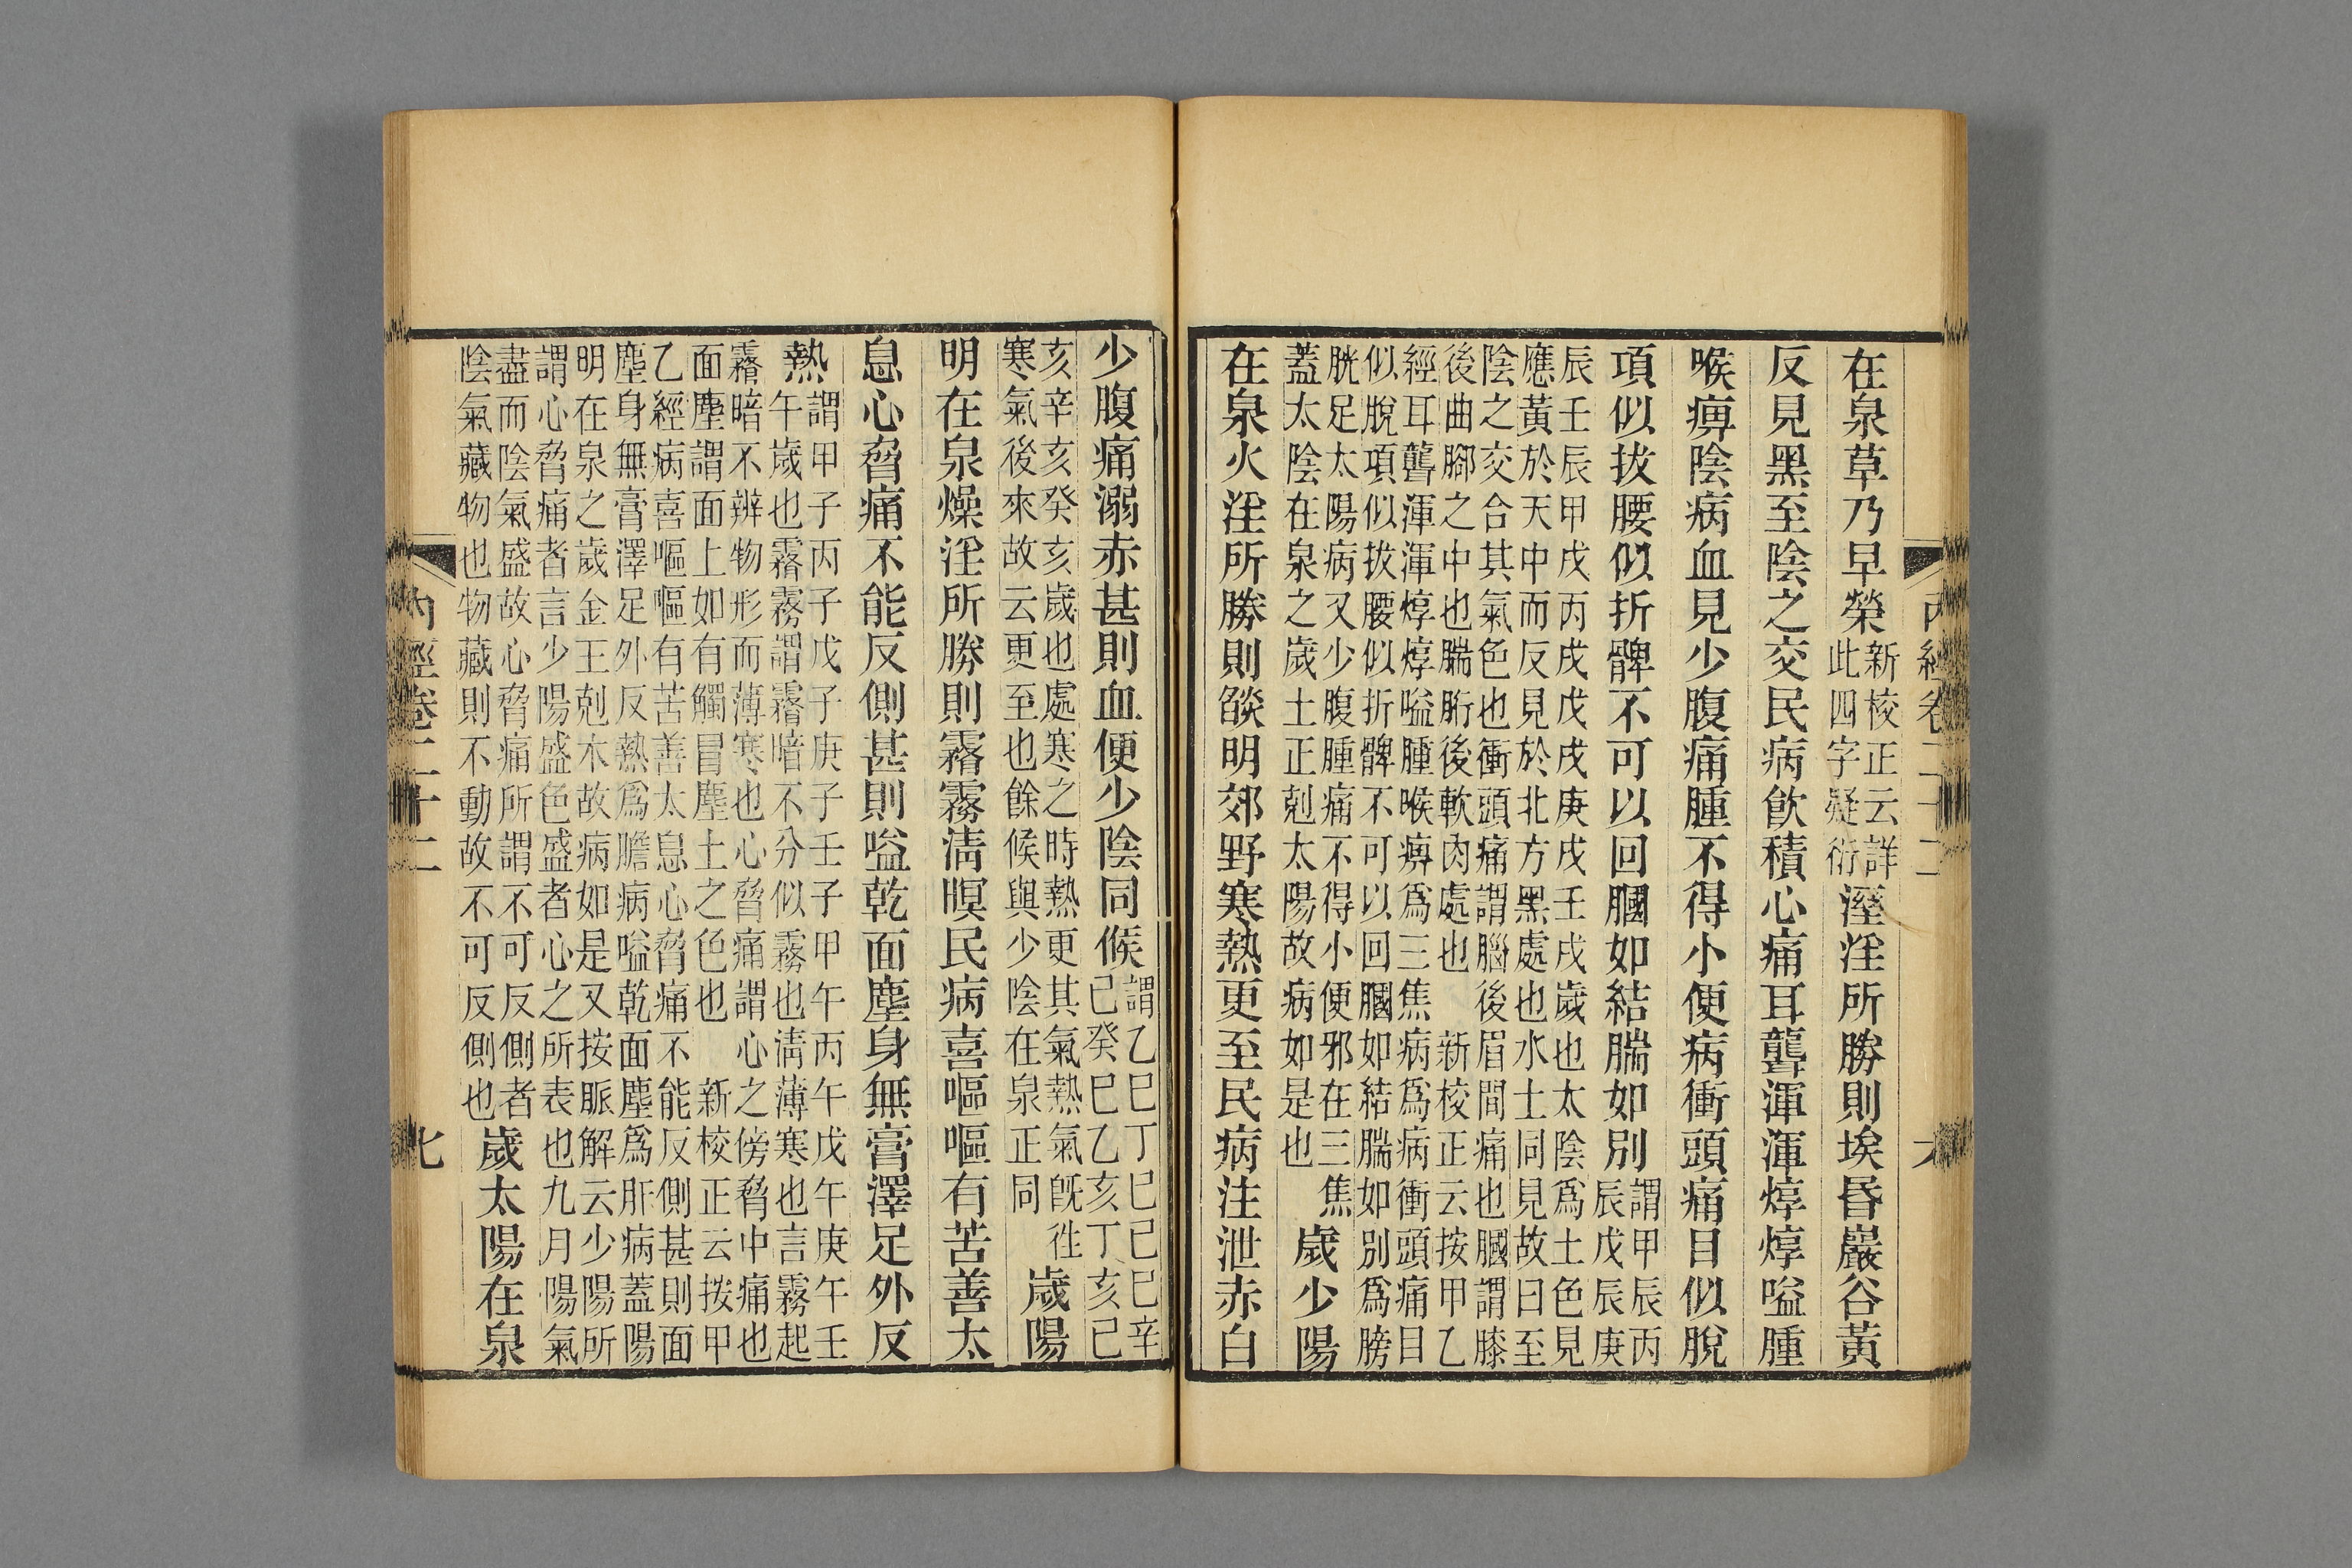 在泉草乃早榮新校正云詳
此四字疑衍溼淫所勝則埃昏巖谷黃
反見黑至陰之交民病飲積心痛耳聾渾渾焞焞嗌腫
喉痹陰病血見少腹痛腫不得小便病衝頭痛目似脫
項似拔腰似折髀不可以回膕如結腨如別謂甲辰丙
辰戊辰庚
辰壬辰甲戌丙戌戊戌庚戌壬戌歲也太陰爲土色見
應黃於天中而反見於北方黑處也水土同見故曰至
陰之交合其氣色也衝頭痛謂腦後眉間痛也膕謂膝
後曲腳之中也腨胻後軟肉處也 新校正云按甲乙
經耳聾渾渾焞焞嗌腫喉痹爲三焦病爲病衝頭痛目
似脫項似拔腰似折髀不可以回膕如結腨如別爲膀
胱足太陽病又少腹腫痛不得小便邪在三焦
蓋太陰在泉之歲土正剋太陽故病如是也歲少陽
在泉火淫所勝則焰明郊野寒熱更至民病注泄赤白
少腹痛溺赤甚則血便少陰同候謂乙巳丁巳己巳辛
巳癸巳乙亥丁亥己
亥辛亥癸亥歲也處寒之時熱更其氣熱氣旣徃
寒氣後來故云更至也餘候與少陰在泉正同歲陽
明在泉燥淫所勝則霿霧淸暝民病喜嘔嘔有苦善太
息心脅痛不能反側甚則嗌乾面塵身無膏澤足外反
熱謂甲子丙子戊子庚子壬子甲午丙午戊午庚午壬
午歲也霿霧謂霿暗不分似霧也淸薄寒也言霧起
霿暗不辨物形而薄寒也心脅痛謂心之傍脅中痛也
面塵謂面上如有觸冒塵土之色也 新校正云按甲
乙經病喜嘔嘔有苦善太息心脅痛不能反側甚則面
塵身無膏澤足外反熱爲膽病嗌乾面塵爲肝病蓋陽
明在泉之歲金王剋木故病如是又按脈解云少陽所
謂心脅痛者言少陽盛也盛者心之所表也九月陽氣
盡而陰氣盛故心脅痛所謂不可反側者
陰氣藏物也物藏則不動故不可反側也歲太陽在泉
內經卷二十二
七